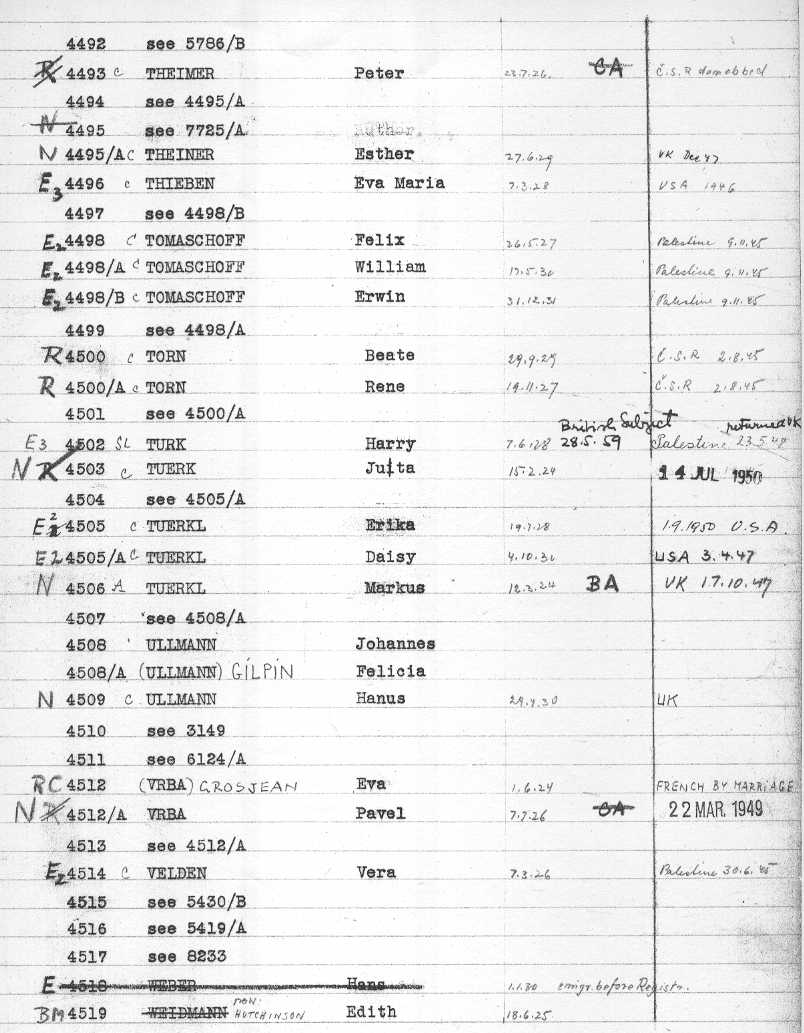 4492 see 5786/B
R 4493 C THEIMER Peter 23.7.26. CA Č.S.R demobbed
4494 see 4495/A
N 4495 see 7725/A
N 4495/A C THEINER Esther 27.6.29 UK Dec 47
E3 4496 C THIEBEN Eva Maria 7.3.28 USA 1946
4497 see 4498/B
E2 4498 C TOMASCHOFF Felix 26.5.27 Palestine 9.11.45
E2 4498/A C TOMASCHOFF William 17.5.30 Palestine 9.11.45
E2 4498/B C TOMASCHOFF Erwin 31.12.31 Palestine 9.11.45
4499 see 4498/A
R 4500 C TORN Beate 29.9.29 Č.S.R 2.8.45
R 4500/A C TORN Rene 19.11.27 Č.S.R 2.8.45
4501 see 4500/A
British Subject returned UK
E3 4502 SL TURK Harry 7.6.28 28.5.59 Palestine 23.5.47
N R 4503 C TUERK Jutta 15.2.24 14 JUL 1950
4504 see 4505/A
E2 4505 C TUERKL Erika 19.7.28 1.9.1950 U.S.A.
E2 4505/A C TUERKL Daisy 4.10.30 USA 3.4.47
N 4506 A TUERKL Markus 12.3.24 BA UK 17.10.47
4507 see 4508/A
4508 ULLMANN Johannes
4508/A (ULLMANN) GILPIN Felicia
N 4509 C ULLMANN Hanus 29.4.30 UK
4510 see 3149
4511 see 6124/A
RC 4512 (VRBA) GROSJEAN Eva 1.6.24 FRENCH BY MARRIAGE
N R 4512/A VRBA Pavel 7.7.26 CA 22 MAR. 1949
4513 see 4512/A
E2 4514 C VELDEN Vera 7.3.26 Palestine 30.6.45
4515 see 5430/B
4516 see 5419/A
4517 see 8233
E 4518 WEBER Hans 1.1.30 emigr. before Registr.
BM 4519 WEIDMANN now: HUTCHINSON Edith 18.6.25